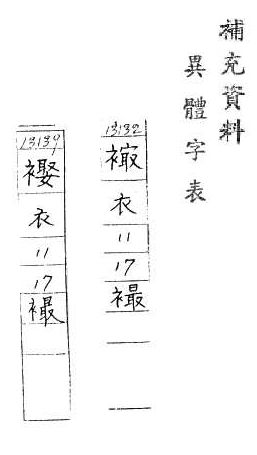 補充資料
異體字表
13132
衣
11
17
襊
13139
衣
11
17
襊